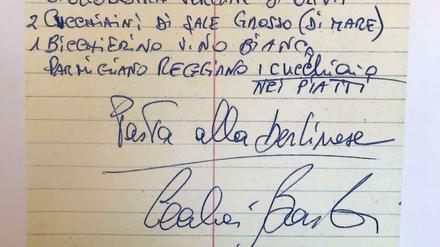 VERGINE DI OLIVA
2 CUCCHIAINI DI SALE GROSSO (DI MARE)
1 BICCHIERINO VINO BIANCO
PARMIGIANO REGGIANO 1 CUCCHIAIO
NEI PIATTI
Pasta alla berlinese